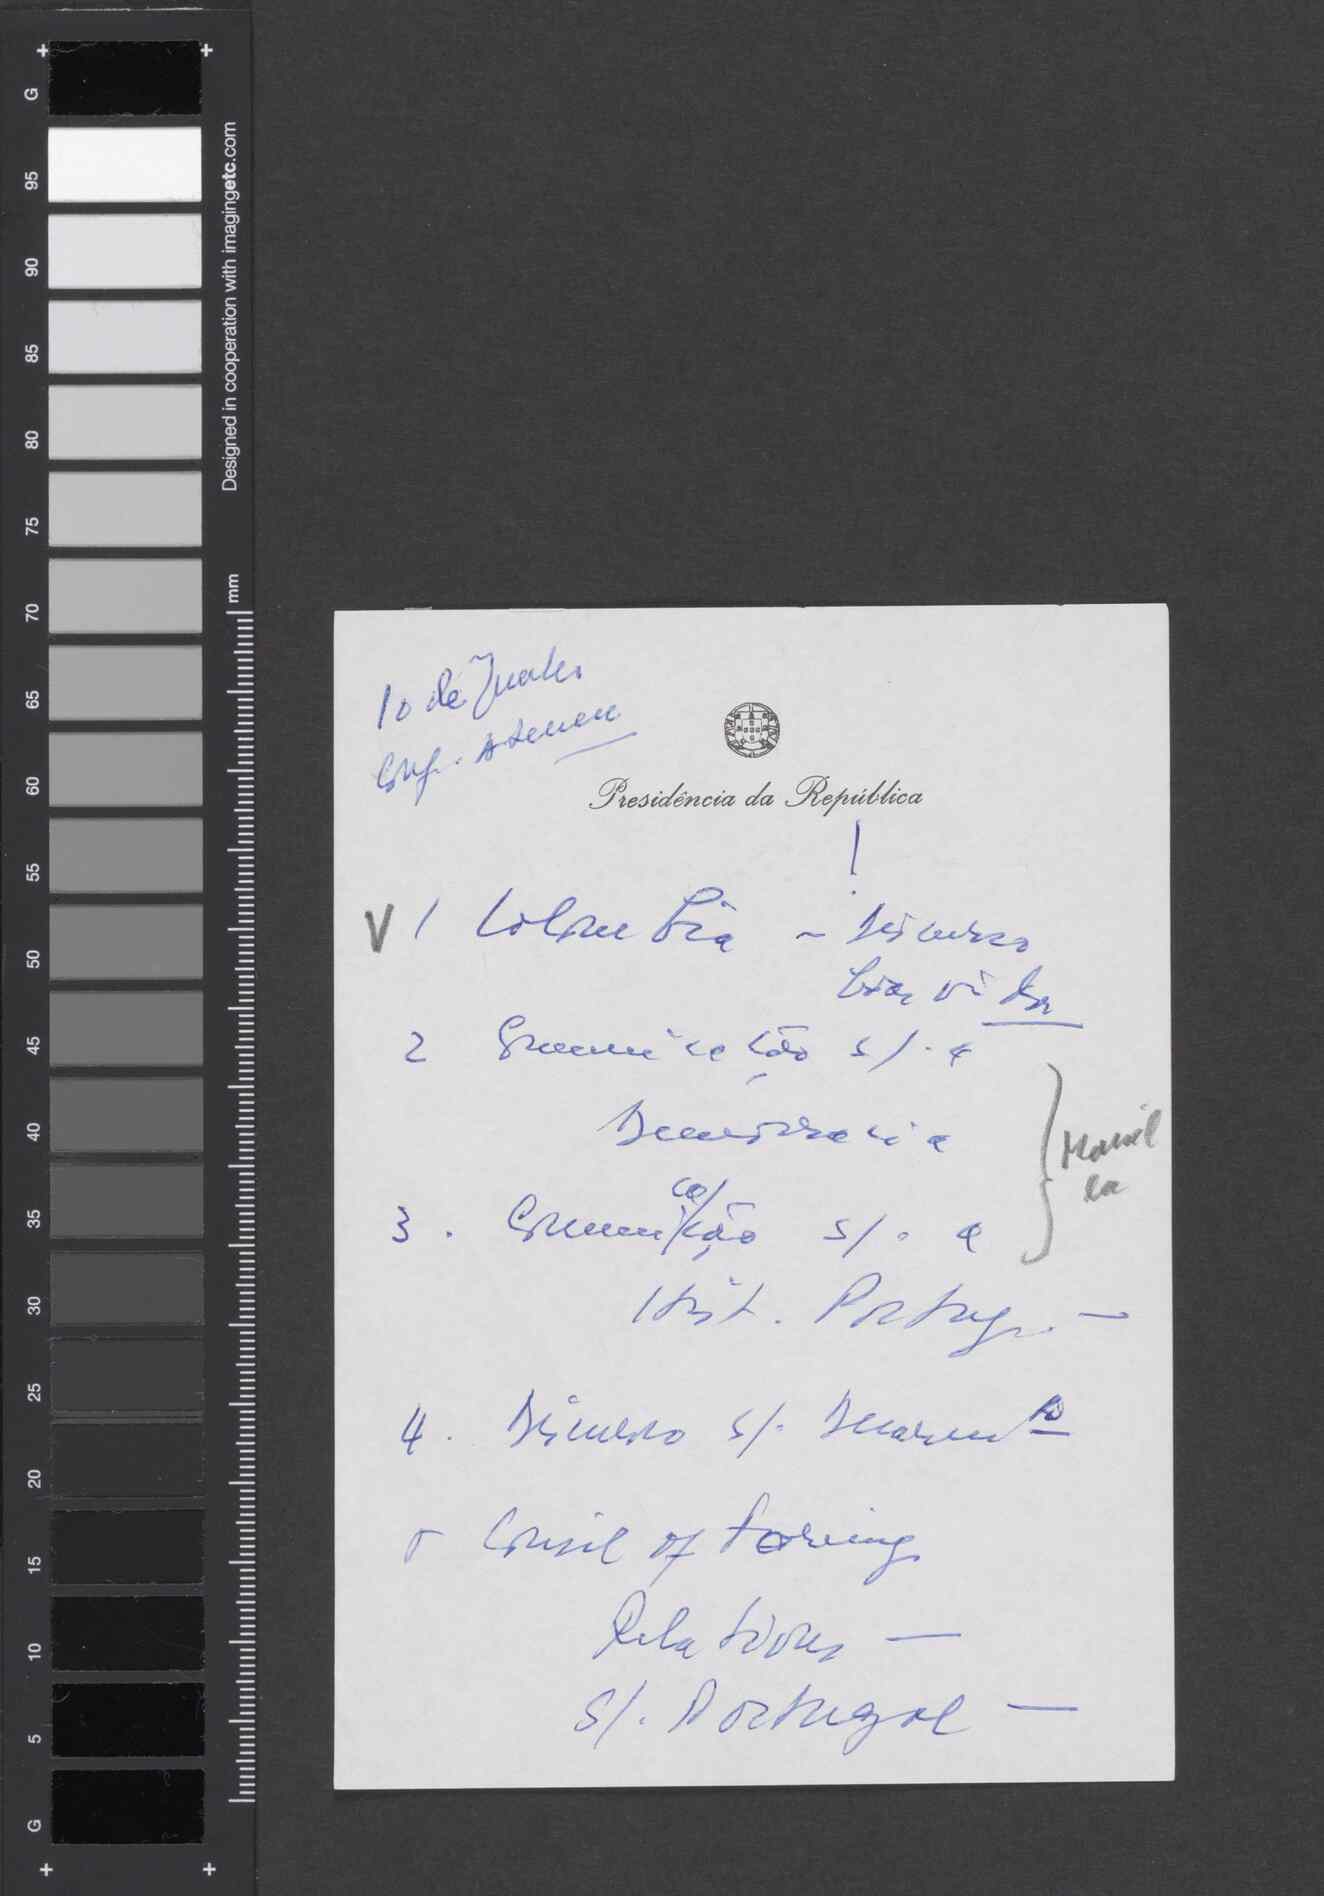 10 de Junho
Conf. Ateneu
Presidência da República
!
V 1 Columbia – Discurso
2 Comunicação s/. a
Democracia
3. Comunicação s/. a
Hist. Portug. –
4. Discurso s/.
5 Consil of Foreing
Relations –
S/. Portugal –
G
95
90
85
80
75
70
65
60
55
50
45
40
35
30
25
20
15
10
5
G
Designed in cooperation with imagingetc.com
mm